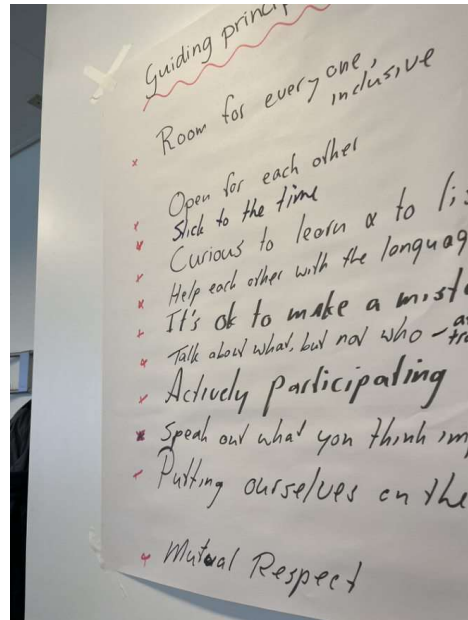 Guiding princip
Room for every one,
inclusive
Open for each other
Stick to the time
Curious to learn & to lis
Help each other with the languag
It's ok to make a mist
Talk about what, but not who -
Actively participating
Speak out what you think im
Putting ourselves on the
Mutual Respect